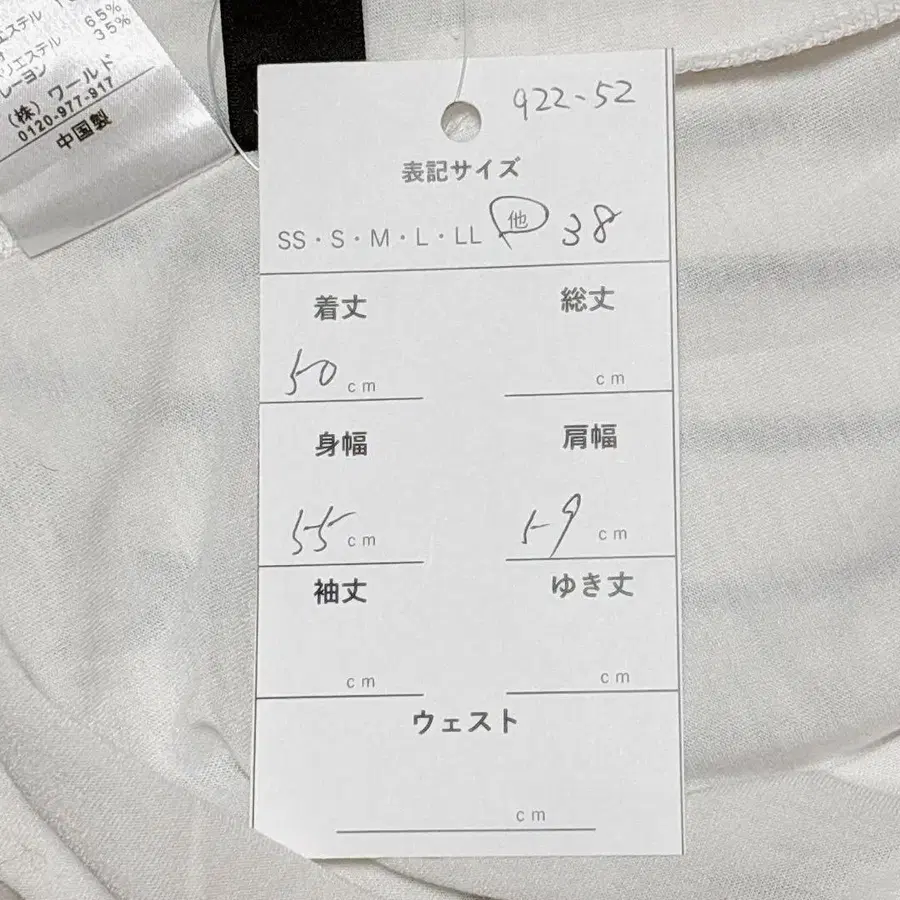 エステル
65%
リエステル 35%
レーヨン
(株) ワールド
0120-977-917
中国製
922-52
表記サイズ
SS・S・M・L・LL 他 38
着丈 総丈
50 cm cm
身幅 肩幅
55 cm 59 cm
袖丈 ゆき丈
cm cm
ウェスト
cm